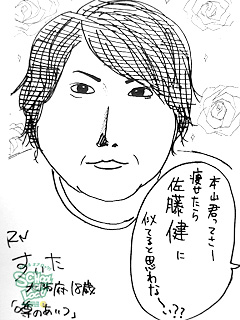 本山君ってさー
痩せたら
佐藤健に
似てると思わな〜い??
RN
すいた
大阪府 18歳
「噂のあいつ」